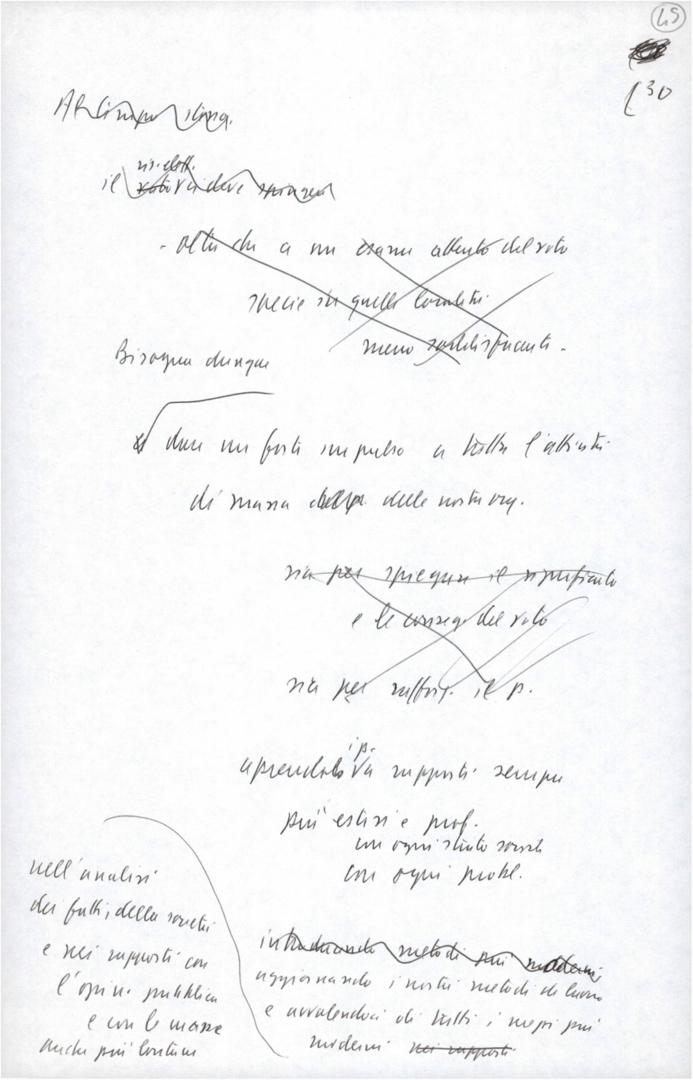 45
130
il voto va deve
- oltre che a un esame attento del voto
specie in quelle località
meno soddisfacenti -
Bisogna dunque
dare un forte impulso a tutta l'attività
di massa delle nostre org.
sia per spiegare il significato
e le conseg. del voto
sia per rafforz. il p.
i p.
aprendolo a rapporti sempre
più estesi e prof.
con ogni strato sociale
con ogni probl.
nell'analisi
dei fatti, della società
e nei rapporti con
l'opin. pubblica
e con le masse
anche più lontane
introducendo metodi più moderni
aggiornando i nostri metodi di lavoro
e avvalendoci di tutti i mezzi più
moderni nei rapporti